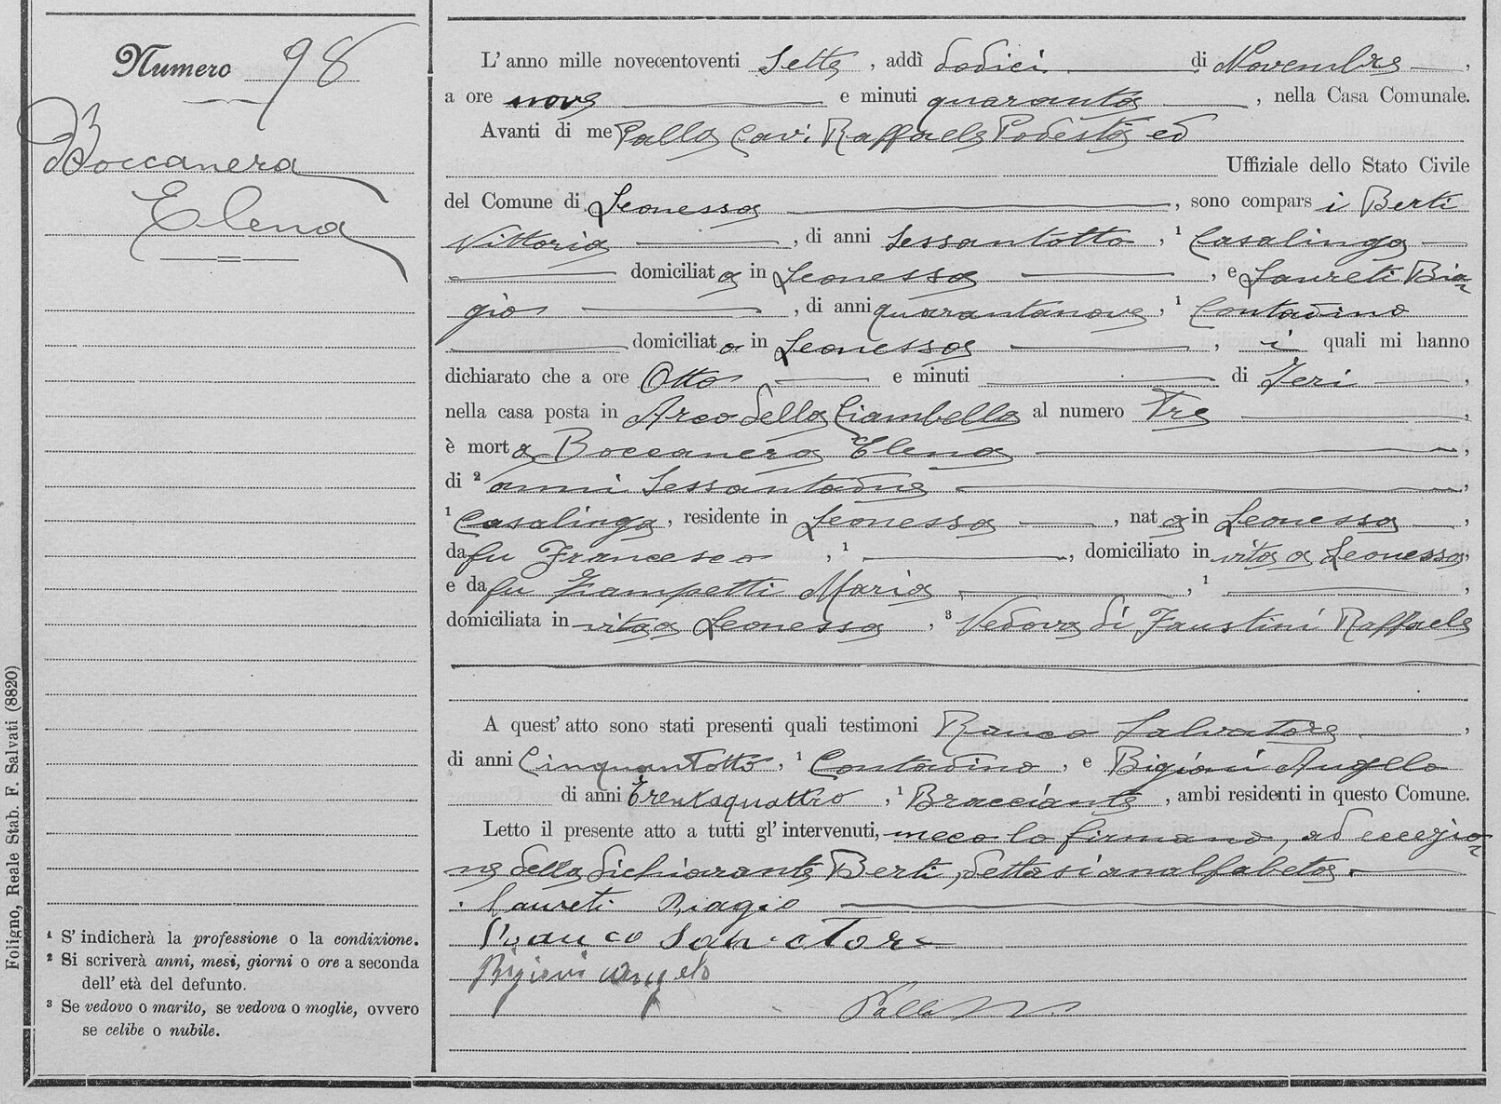 Numero 98
Boccanera
Elena
L'anno mille novecentoventi sette, addì dodici di Novembre,
a ore nove e minuti quaranta, nella Casa Comunale.
Avanti di me Palla Cav. Raffaele Podestà ed
Uffiziale dello Stato Civile
del Comune di Leonessa, sono compars i Berti
Vittoria, di anni sessantotto, ¹ Casalinga
domiciliat a in Leonessa, e Laureti Bia-
gio, di anni quarantanove, ¹ Contadino
domiciliat o in Leonessa, i quali mi hanno
dichiarato che a ore Otto e minuti di Ieri,
nella casa posta in Arco della Ciambella al numero Tre,
è mort a Boccanera Elena,
di ² anni Sessantadue,
¹ Casalinga, residente in Leonessa, nat a in Leonessa,
da fu Francesco, ¹, domiciliato in vita a Leonessa,
e da fu Zampetti Maria, ¹,
domiciliata in vita a Leonessa, ³ Vedova di Faustini Raffaele
A quest'atto sono stati presenti quali testimoni Rauco Salvatore,
di anni Cinquantotto, ¹ Contadino, e Bigioni Angelo
di anni trentaquattro, ¹ Bracciante, ambi residenti in questo Comune.
Letto il presente atto a tutti gl'intervenuti, meco lo firmano, ad eccezio-
ne della dichiarante Berti, dettasi analfabeta.
Laureti Biagio
Rauco Salvatore
Bigioni Angelo
Palla
¹ S'indicherà la professione o la condizione.
² Si scriverà anni, mesi, giorni o ore a seconda
dell'età del defunto.
³ Se vedovo o marito, se vedova o moglie, ovvero
se celibe o nubile.
Foligno, Reale Stab. F. Salvati (8820)